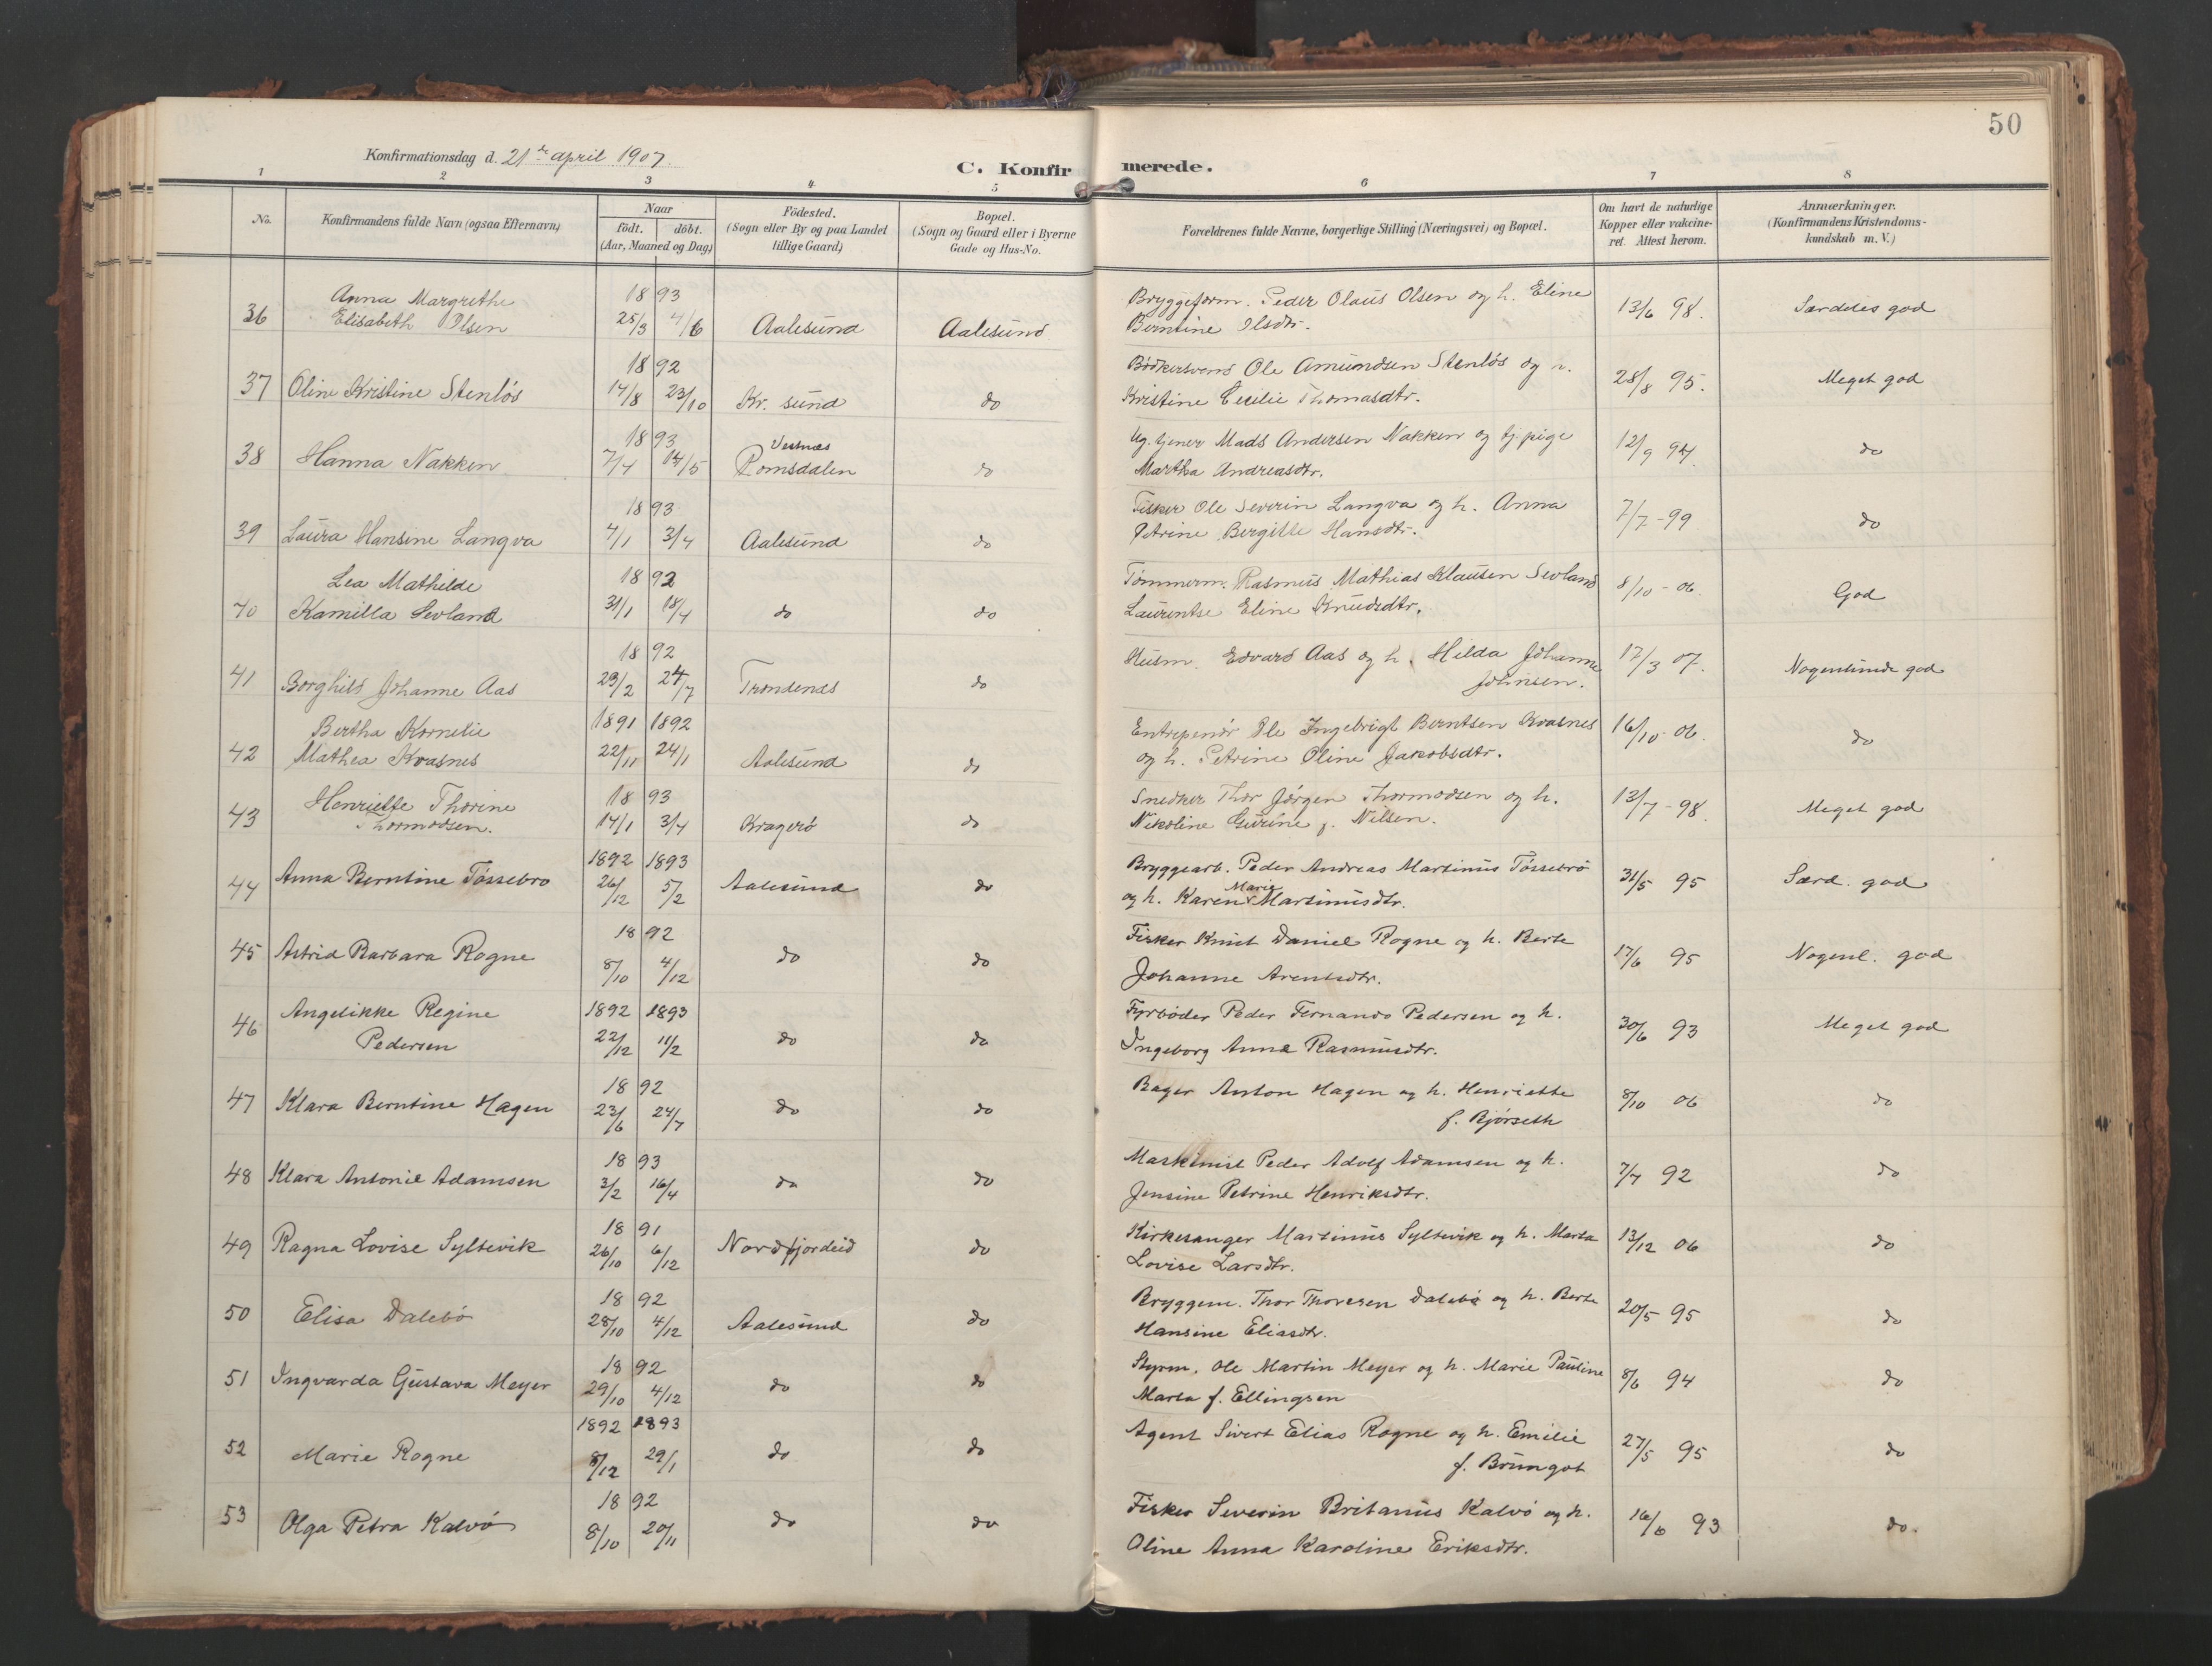 50
Konfirmationsdag d. 21de april 1907.
C. Konfirmerede.
1 2 3 4 5 6 7 8
No. Konfirmandens fulde Navn (ogsaa Efternavn) Naar født. døbt. (Aar, Maaned og Dag) Fødested. (Sogn eller By og paa Landet tillige Gaard) Bopæl. (Sogn og Gaard eller i Byerne Gade og Hus-No. Forældrenes fulde Navne, borgerlige Stilling (Næringsvei) og Bopæl. Om havt de naturlige Kopper eller vakcineret. Attest herom. Anmærkninger. (Konfirmandens Kristendomskundskab m. V.)
Anna Margrethe 18 93 Bryggeform. Peder Olaus Olsen og h. Eline
36 Elisabeth Olsen 25/3 4/6 Aalesund Aalesund Berntine Olsdtr. 13/6 98. Særdeles god
18 92 Bødkersvend Ole Amundsen Stenløs og h.
37 Oline Kristine Stenløs 14/8 23/10 Kr. sund do Kristine Cecilie Thomasdtr. 28/8 95. Meget god
18 93 Vestnæs Ug. tjener Mads Andersen Nakken og tj. pige
38 Hanna Nakken 7/4 14/5 Romsdalen do Martha Andreasdtr. 12/9 94. do
18 93 Fisker Ole Severin Langva og h. Anna
39 Laura Hansine Langva 4/1 3/4 Aalesund do Petrine Bergitte Hansdtr. 7/7-99 do
Lea Mathilde 18 92 Tømmerm. Rasmus Mathias Klausen Sevland
40 Kamilla Sevland 31/1 18/4 do do Laurentse Eline Knudsdtr. 8/10-06. God
18 92 Husm. Edvard Aas og h. Hilda Johanne
41 Borghild Johanne Aas 23/2 24/7 Trondenes do Johnsen. 17/3 07. Nogenlunde god
Bertha Kornelie 1891 1892 Entrepenør Ole Ingebrigt Berntsen Kvasnes
42 Mathea Kvasnes 22/11 24/1 Aalesund do og h. Petrine Oline Jakobsdtr. 16/10-06. do
Henriette Thorine 18 93 Snedker Thor Jørgen Thormodsen og h.
43 Thormodsen. 14/1 3/4 Kragerø do Nikoline Gurine f. Nilsen. 13/7-98. Meget god
1892 1893 Bryggearb. Peder Andreas Martinus Tøssebrø
44 Anna Berntine Tøssebro 26/12 5/2 Aalesund do og h. Karen Marie Martinusdtr. 31/5 95 Særd. god
18 92 Fisker Knut Daniel Rogne og h. Berte
45 Astrid Barbara Rogne 8/10 4/12 do do Johanne Arentsdtr. 17/6 95 Nogenl. god
Angelikke Regine 1892 1893 Fyrbøder Peder Fernando Pedersen og h.
46 Pedersen 22/12 11/2 do do Ingeborg Anna Rasmusdtr. 30/6 93 Meget god
18 92 Bager Anton Hagen og h. Henriette
47 Klara Berntine Hagen 23/6 24/7 do do f. Bjørseth 8/10 06 do
18 93 Maskinist Peder Adolf Adamsen og h.
48 Klara Antonie Adamsen 3/2 16/4 do do Jensine Petrine Henriksdtr. 7/7 92 do
18 91 Kirkesanger Martinus Syltevik og h. Marta
49 Ragna Lovise Syltevik 26/10 6/12 Nordfjordeid do Lovise Larsdtr. 13/12 06 do
18 92 Bryggem. Thor Thoresen Dalebø og h. Berte
50 Elisa Dalebø 28/10 4/12 Aalesund do Hansine Eliasdtr. 20/5 95 do
18 92 Styrm. Ole Martin Meyer og h. Marie Pauline
51 Ingvarda Gustava Meyer 29/10 4/12 do do Marta f. Ellingsen 8/6 94 do
1892 1893 Agent Sivert Elias Rogne og h. Emilie
52 Marie Rogne 8/12 29/1 do do f. Brungot 27/5 95 do
18 92 Fisker Severin Britanus Kalvø og h.
53 Olga Petra Kalvø 8/10 20/11 do do Oline Anna Karoline Eriksdtr. 16/6 93 do.